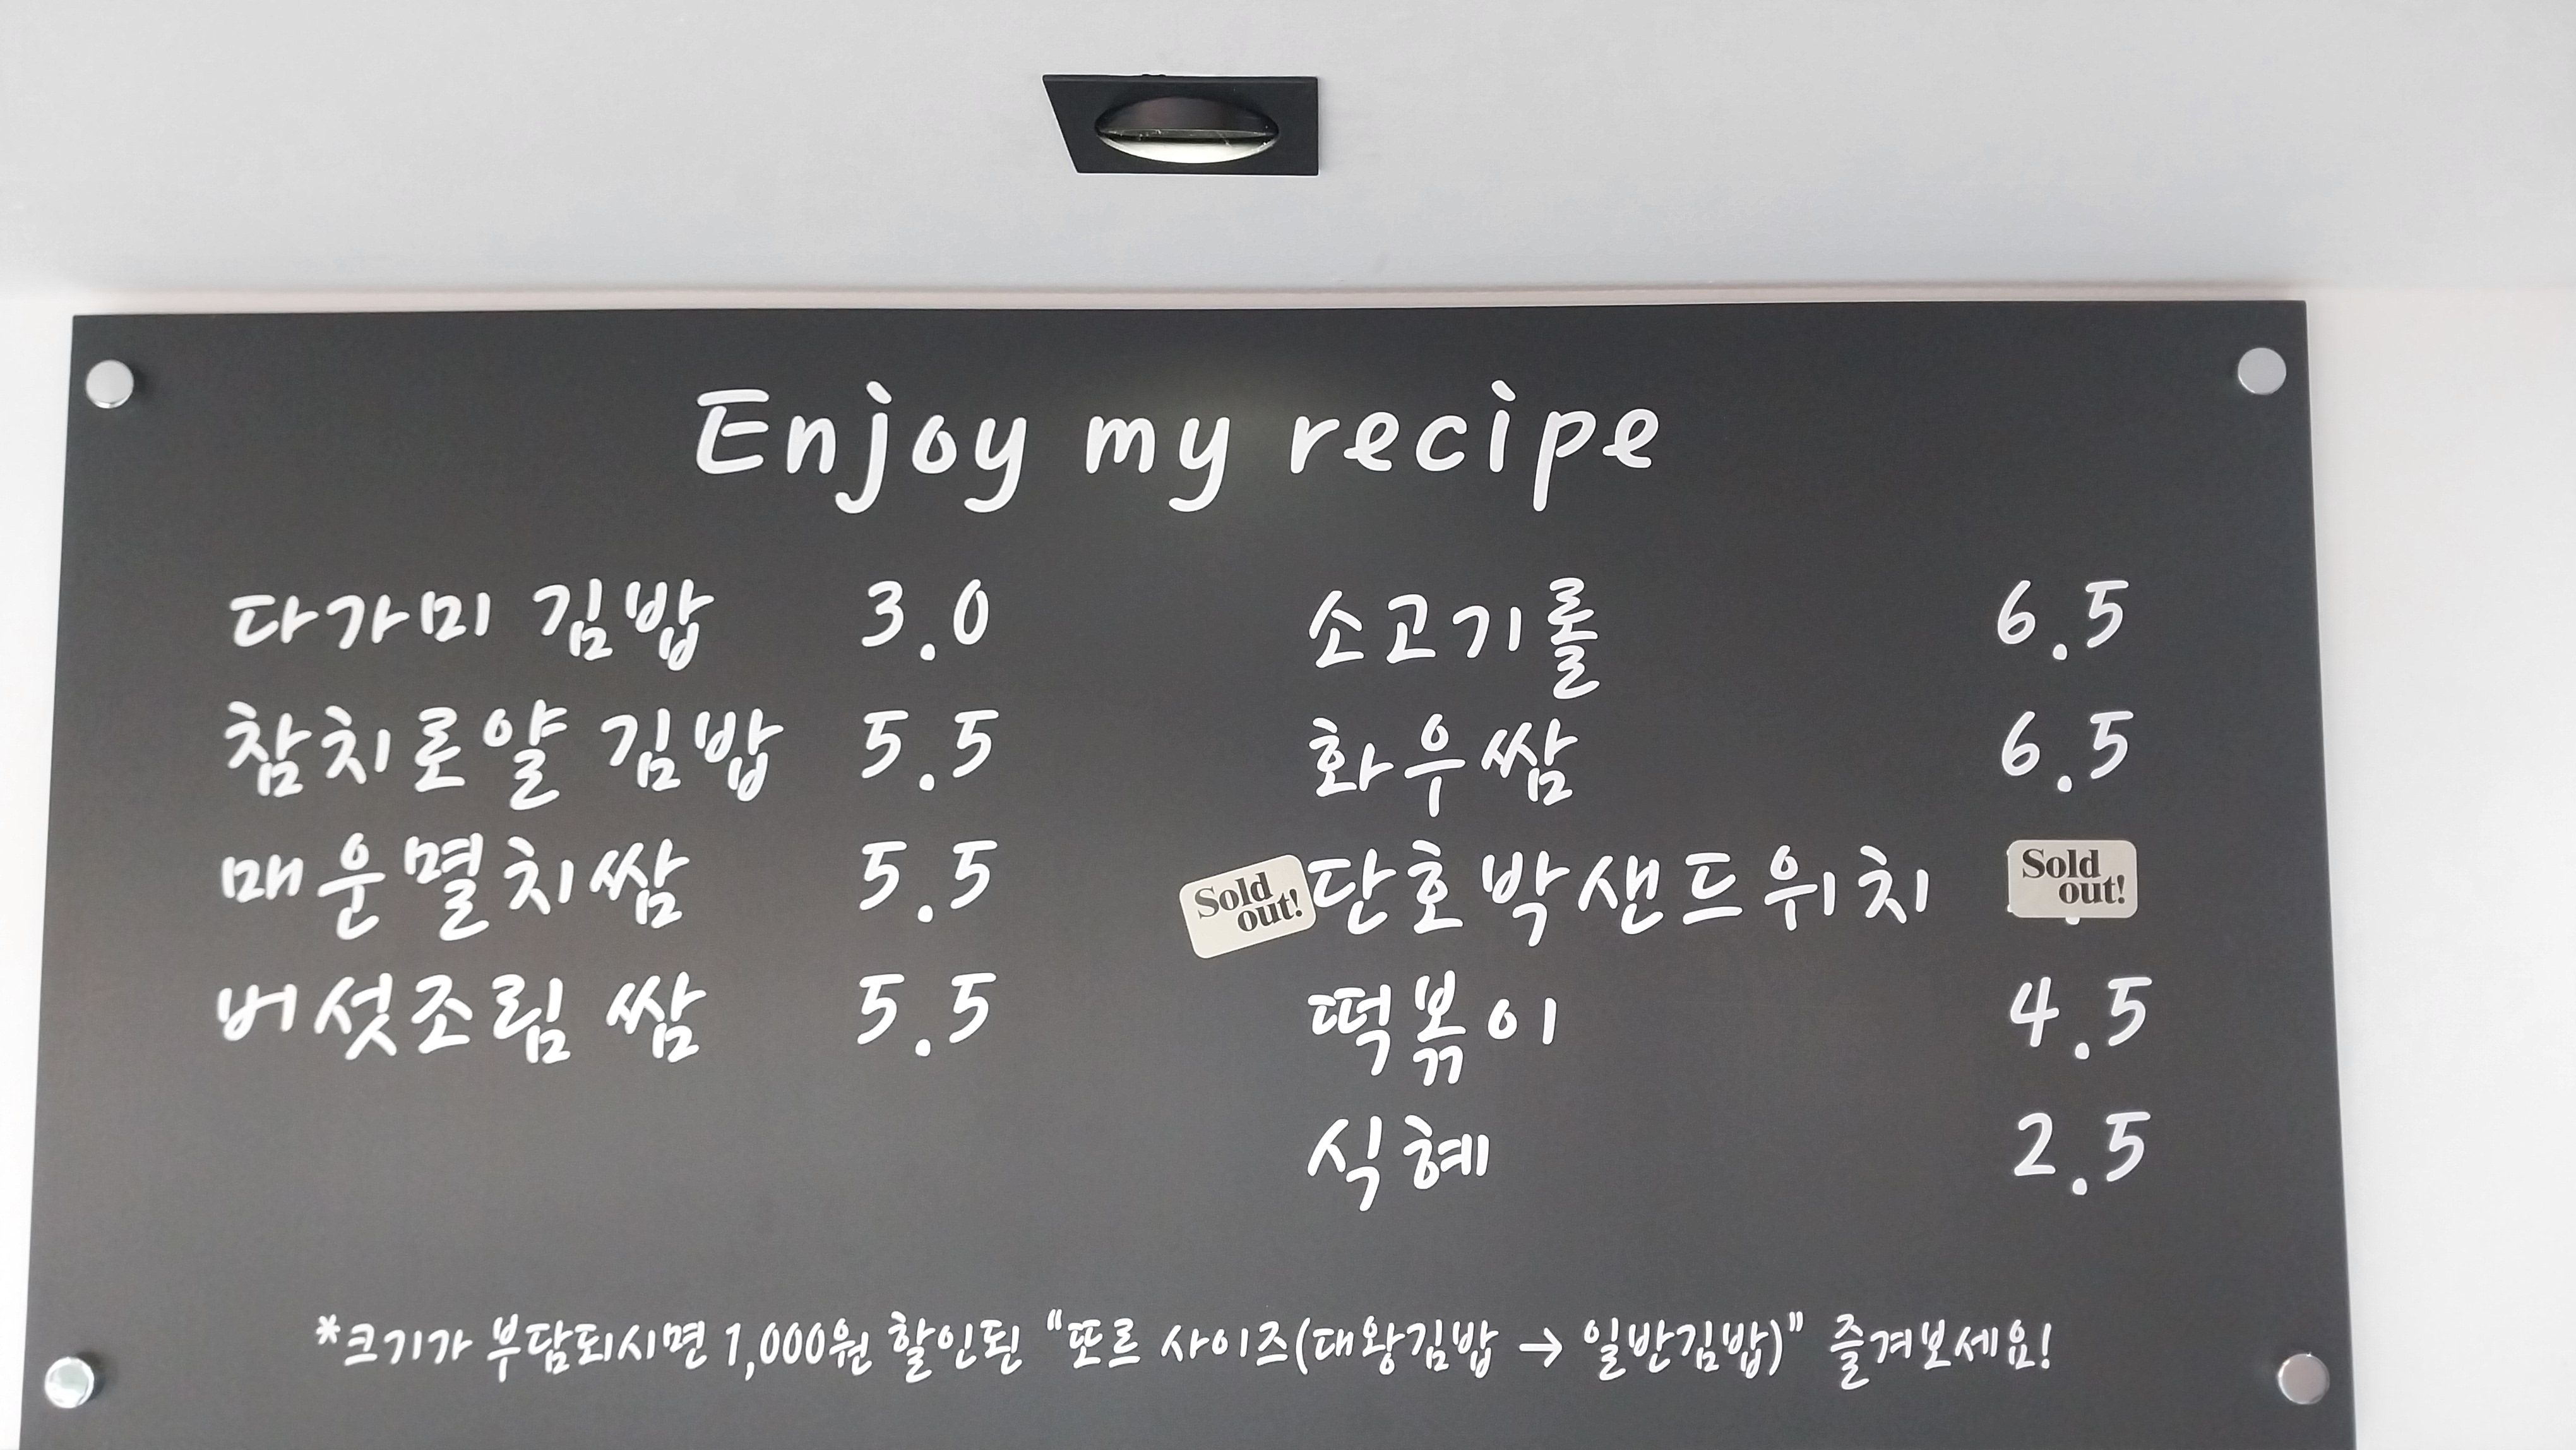 Enjoy my recipe
다가미 김밥 3.0
참치로얄 김밥 5.5
매운멸치쌈 5.5
버섯조림 쌈 5.5
소고기롤 6.5
화우쌈 6.5
Sold out! 단호박샌드위치 Sold out!
떡볶이 4.5
식혜 2.5
*크기가 부담되시면 1,000원 할인된 "또르 사이즈(대왕김밥 → 일반김밥)" 즐겨보세요!